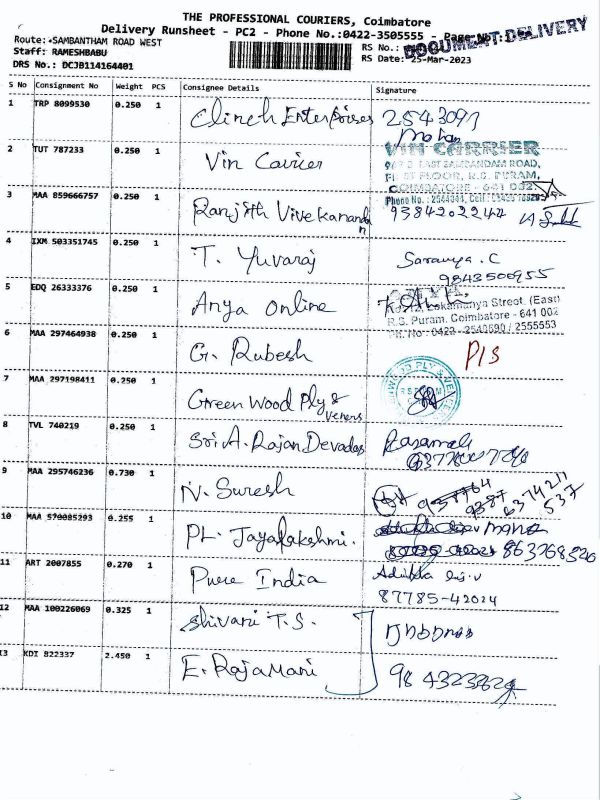 THE PROFESSIONAL COURIERS, Coimbatore
Delivery Runsheet - PC2 - Phone No.:0422-3505555 - Page No
DOCUMENT DELIVERY
Route: SAMBANTHAM ROAD WEST
RS No.:
Staff: RAMESHBABU
RS Date: 25-Mar-2023
DRS No.: DCJB114164401
S No Consignment No Weight PCS Consignee Details Signature
1 TRP 8099530 0.250 1 Clinch Enterprises 2543097
Mohan
2 TUT 787233 0.250 1 Vin Carrier
VIN CARRIER
EAST SAMBANDAM ROAD,
FIRST FLOOR, R.S. PURAM,
COIMBATORE - 641 002
3 MAA 859666757 0.250 1 Ranjith Vivekanandan 9384202242
4 IXM 503351745 0.250 1 T. Yuvaraj Saranya.C
9843500955
5 EDQ 26333376 0.250 1 Anya Online
Lokamanya Street, (East)
R.S. Puram, Coimbatore - 641 002
PH. No : 0422 - 2540690 / 2555553
6 MAA 297464938 0.250 1 G. Rubesh P/S
7 MAA 297198411 0.250 1 Green Wood Ply & Veners
8 TVL 740219 0.250 1 Sri A. Rajan Devadas
9 MAA 295746236 0.730 1 N. Suresh
9387
6374211
537
10 MAA 579085293 0.255 1 PL. Jayalakshmi.
11 ART 2007855 0.270 1 Pure India
87785-42024
12 MAA 100226069 0.325 1 Shivani T.S.
13 KDI 822337 2.450 1 E. RajaMani